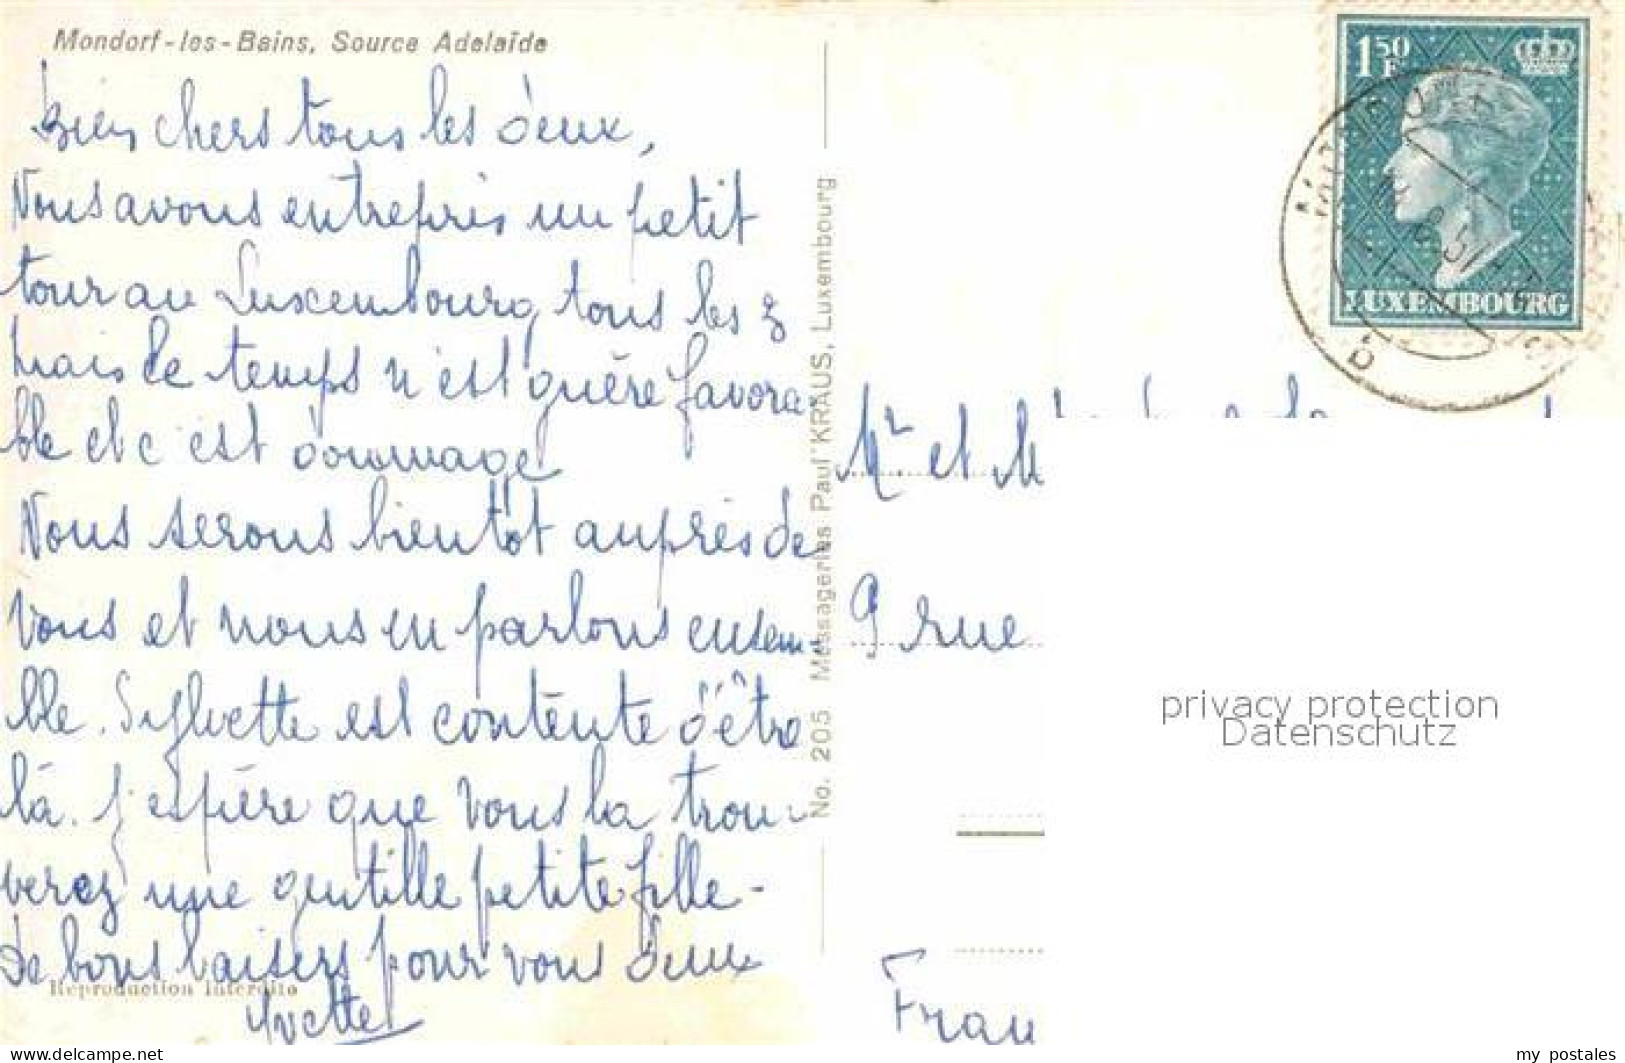 Mondorf-les-Bains, Source Adelaïde
Bien chers tous les deux,
Nous avons entrepris un petit
tour au Luxembourg, tous les 3
mais le temps n'est guère favora-
ble et c'est dommage
Nous serons bientôt auprès de
vous et nous en parlons ensem-
ble. Sylvette est contente d'être
là. J'espère que vous la trou-
verez une gentille petite fille -
De bons baisers pour vous deux
Yvette
Reproduction interdite
No. 205 Messageries Paul KRAUS, Luxembourg
1 50 F
LUXEMBOURG
Mr et M
9 rue
privacy protection
Datenschutz
Fran
my_postales
www.delcampe.net